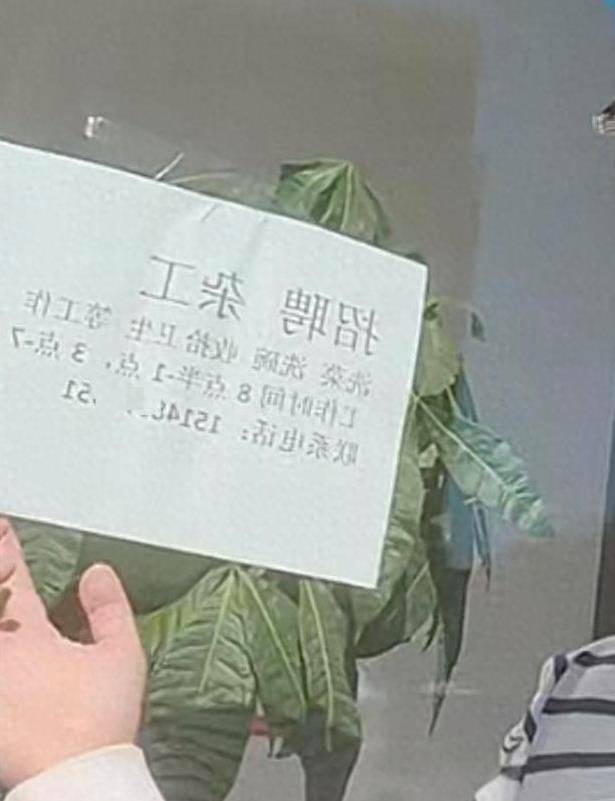 招聘 杂工
洗菜 洗碗 收拾卫生 等工作
工作时间 8 点半-1 点, 3 点-7
联系电话: 1514 51